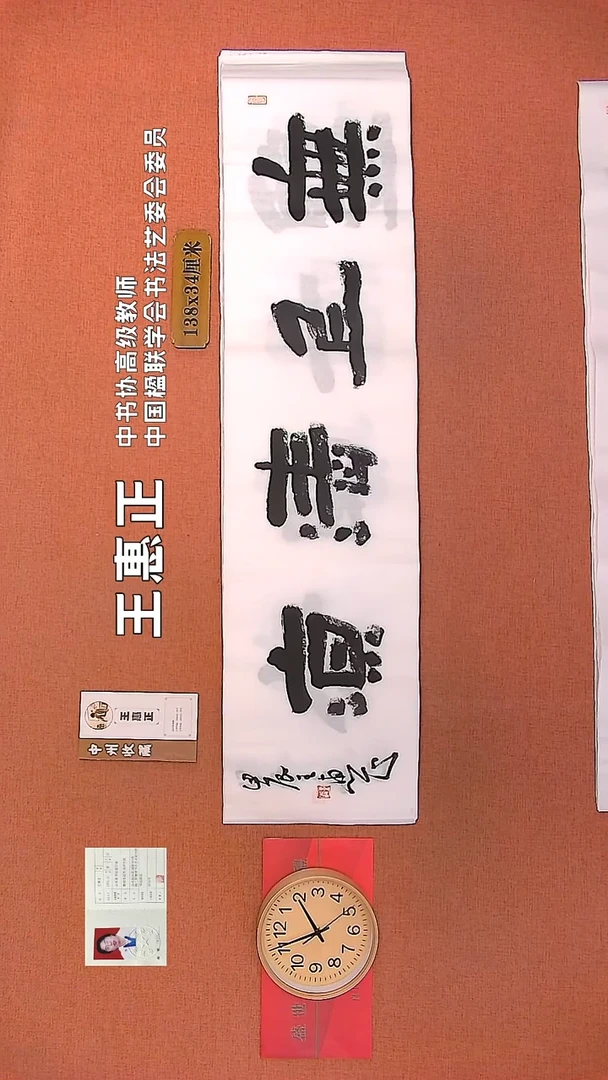 中书协高级教师
中国楹联学会书法艺委会委员
王惠正
138x34厘米
無上清凉
王惠正
中州收藏
盛世
12
1
2
3
4
5
6
7
8
9
10
11